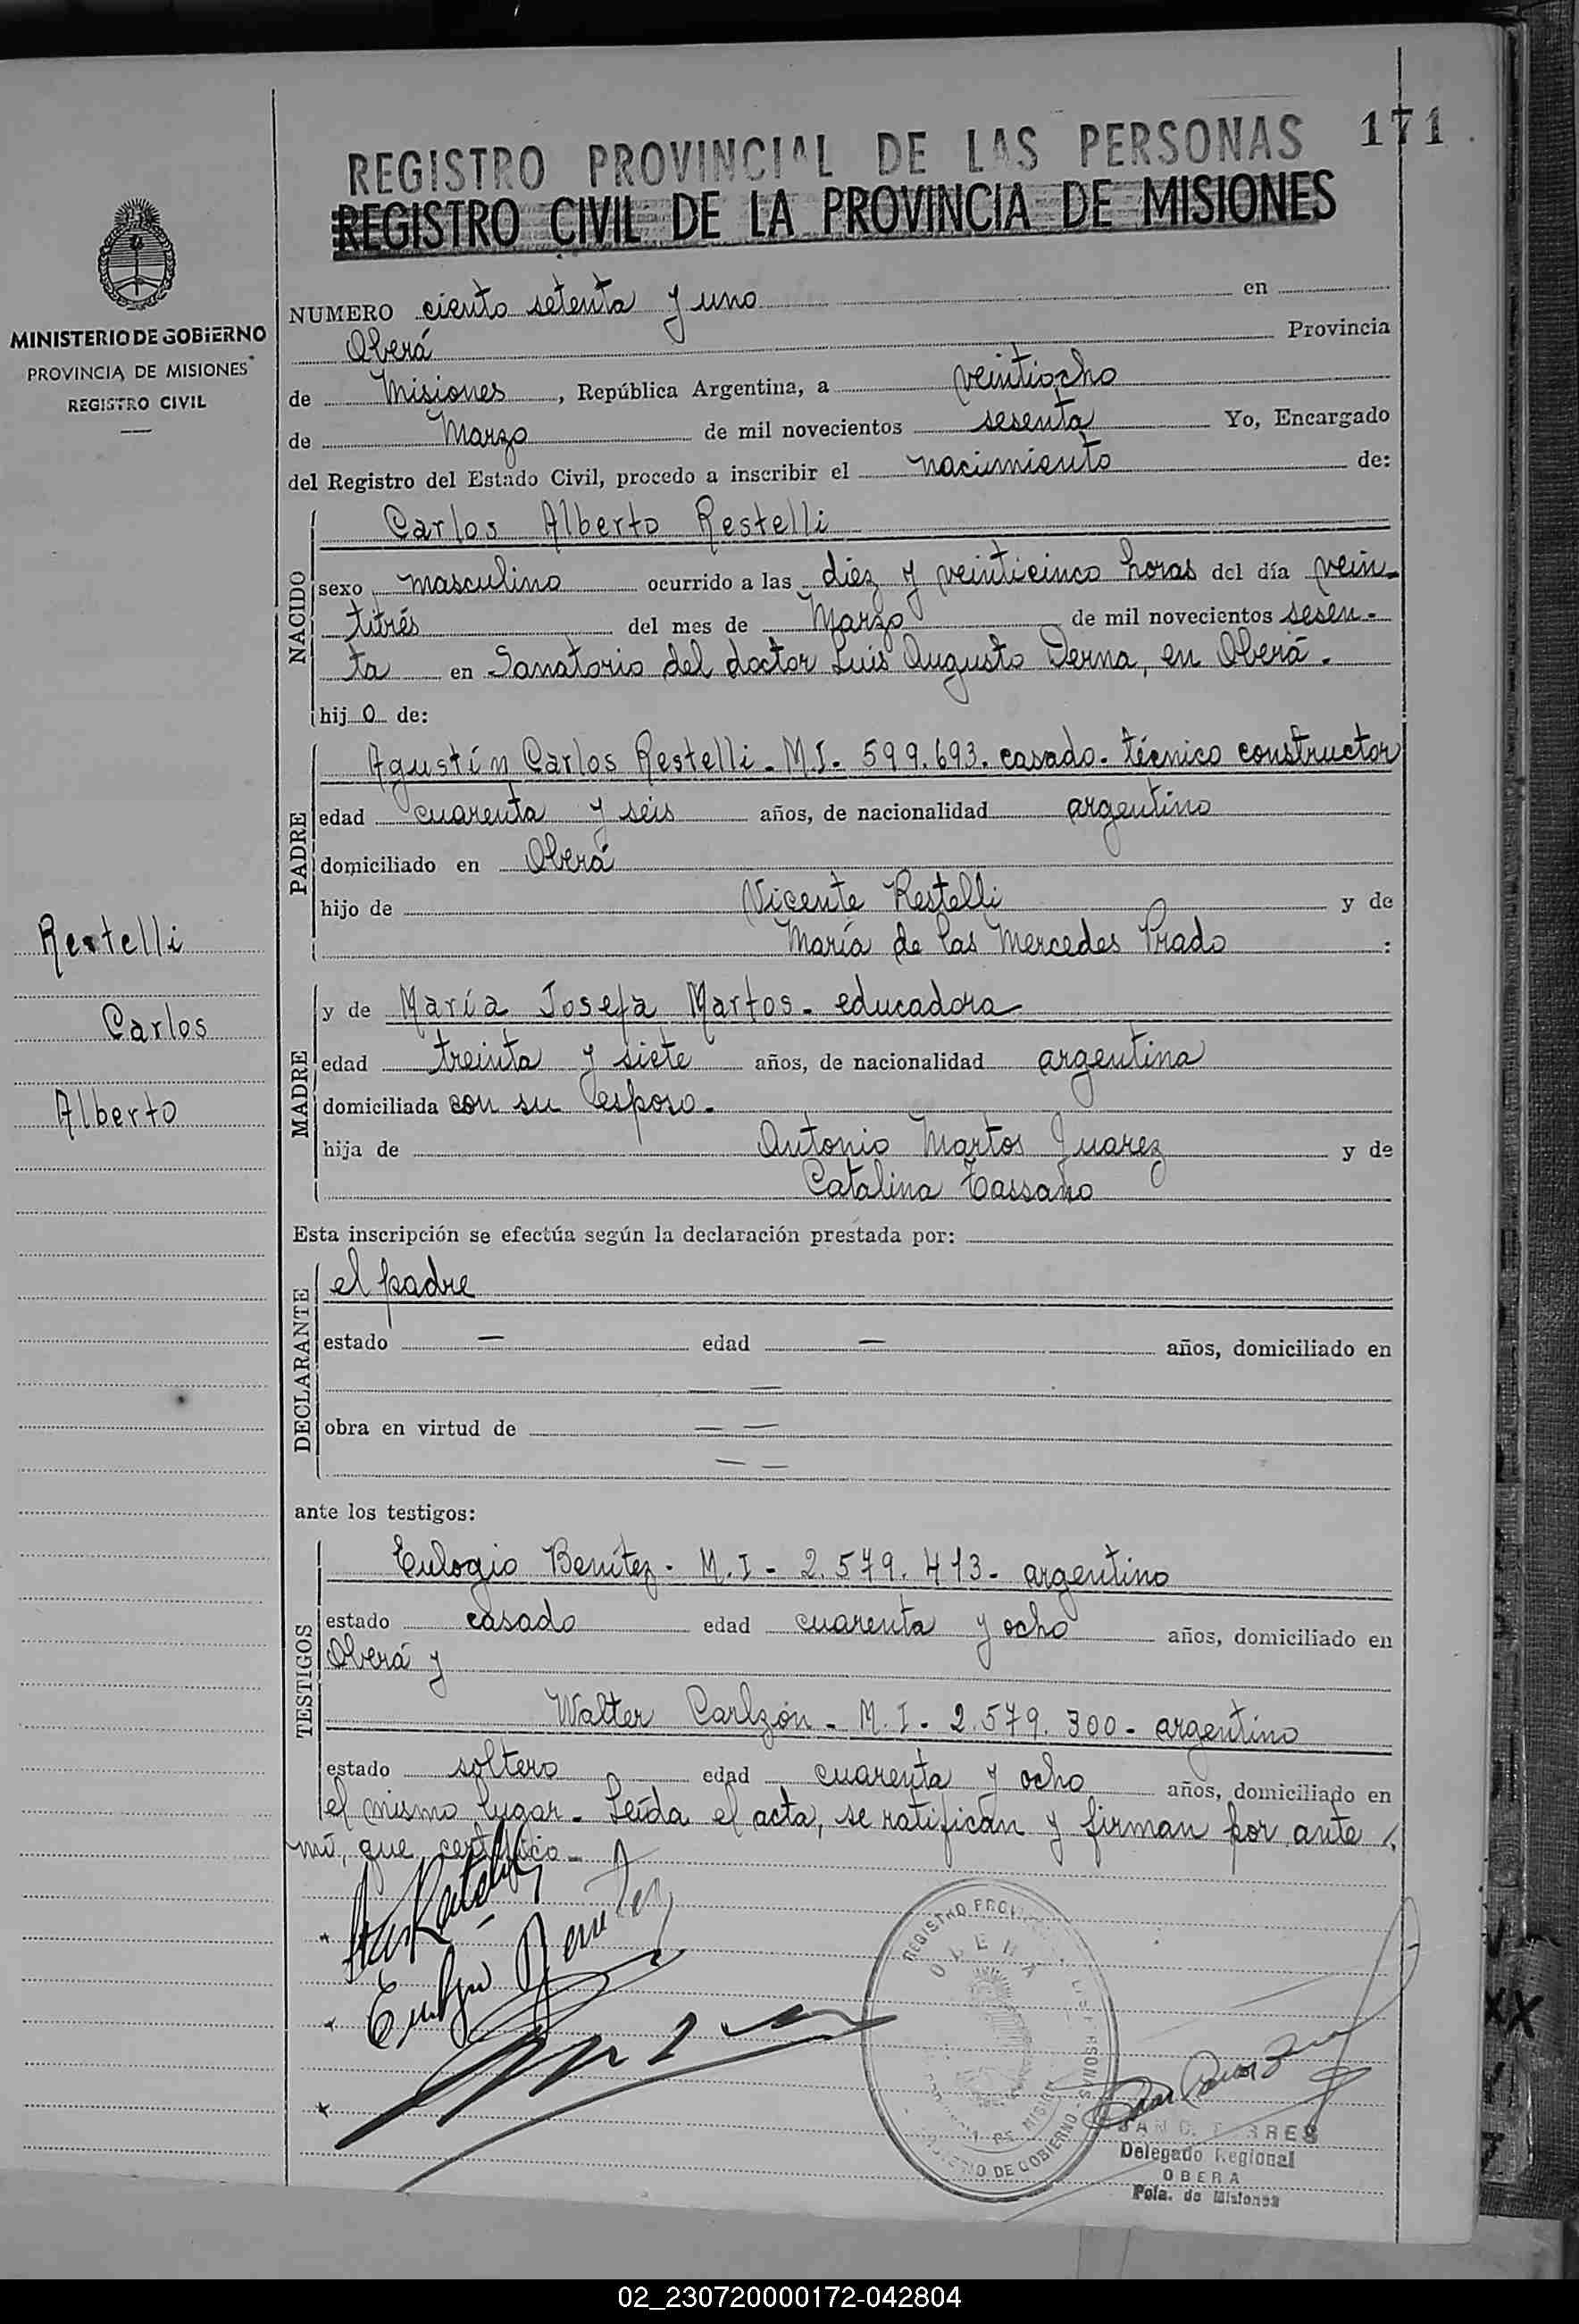 171
REGISTRO PROVINCIAL DE LAS PERSONAS
REGISTRO CIVIL DE LA PROVINCIA DE MISIONES
MINISTERIO DE GOBIERNO
PROVINCIA DE MISIONES
REGISTRO CIVIL
NUMERO ciento setenta y uno en
Oberá Provincia
de Misiones, República Argentina, a veintiocho
de Marzo de mil novecientos sesenta Yo, Encargado
del Registro del Estado Civil, procedo a inscribir el nacimiento de:
NACIDO
Carlos Alberto Restelli
sexo masculino ocurrido a las diez y veinticinco horas del día vein-
titrés del mes de Marzo de mil novecientos sesen-
ta en Sanatorio del doctor Luis Augusto Derna, en Oberá.
hijo de:
PADRE
Agustín Carlos Restelli - M.I. 599.693. casado - técnico constructor
edad cuarenta y seis años, de nacionalidad argentino
domiciliado en Oberá
hijo de Vicente Restelli y de
María de las Mercedes Prado :
Restelli
Carlos
Alberto
MADRE
y de María Josefa Martos - educadora
edad treinta y siete años, de nacionalidad argentina
domiciliada con su esposo.
hija de Antonio Martos Juarez y de
Catalina Tassano
Esta inscripción se efectúa según la declaración prestada por:
DECLARANTE
el padre
estado — edad — años, domiciliado en
— —
obra en virtud de — —
— —
ante los testigos:
TESTIGOS
Eulogio Benítez - M.I - 2.579.413 - argentino
estado casado edad cuarenta y ocho años, domiciliado en
Oberá y
Walter Carlzon - M.I - 2.579.300 - argentino
estado soltero edad cuarenta y ocho años, domiciliado en
el mismo lugar - Leída el acta, se ratifican y firman por ante
mí, que certifico -
Eulogio Benitez
REGISTRO PROVINCIAL DE LAS PERSONAS
OBERA
PROVINCIA DE MISIONES
MINISTERIO DE GOBIERNO
Delegado Regional
OBERA
Pcia. de Misiones
02_230720000172-042804